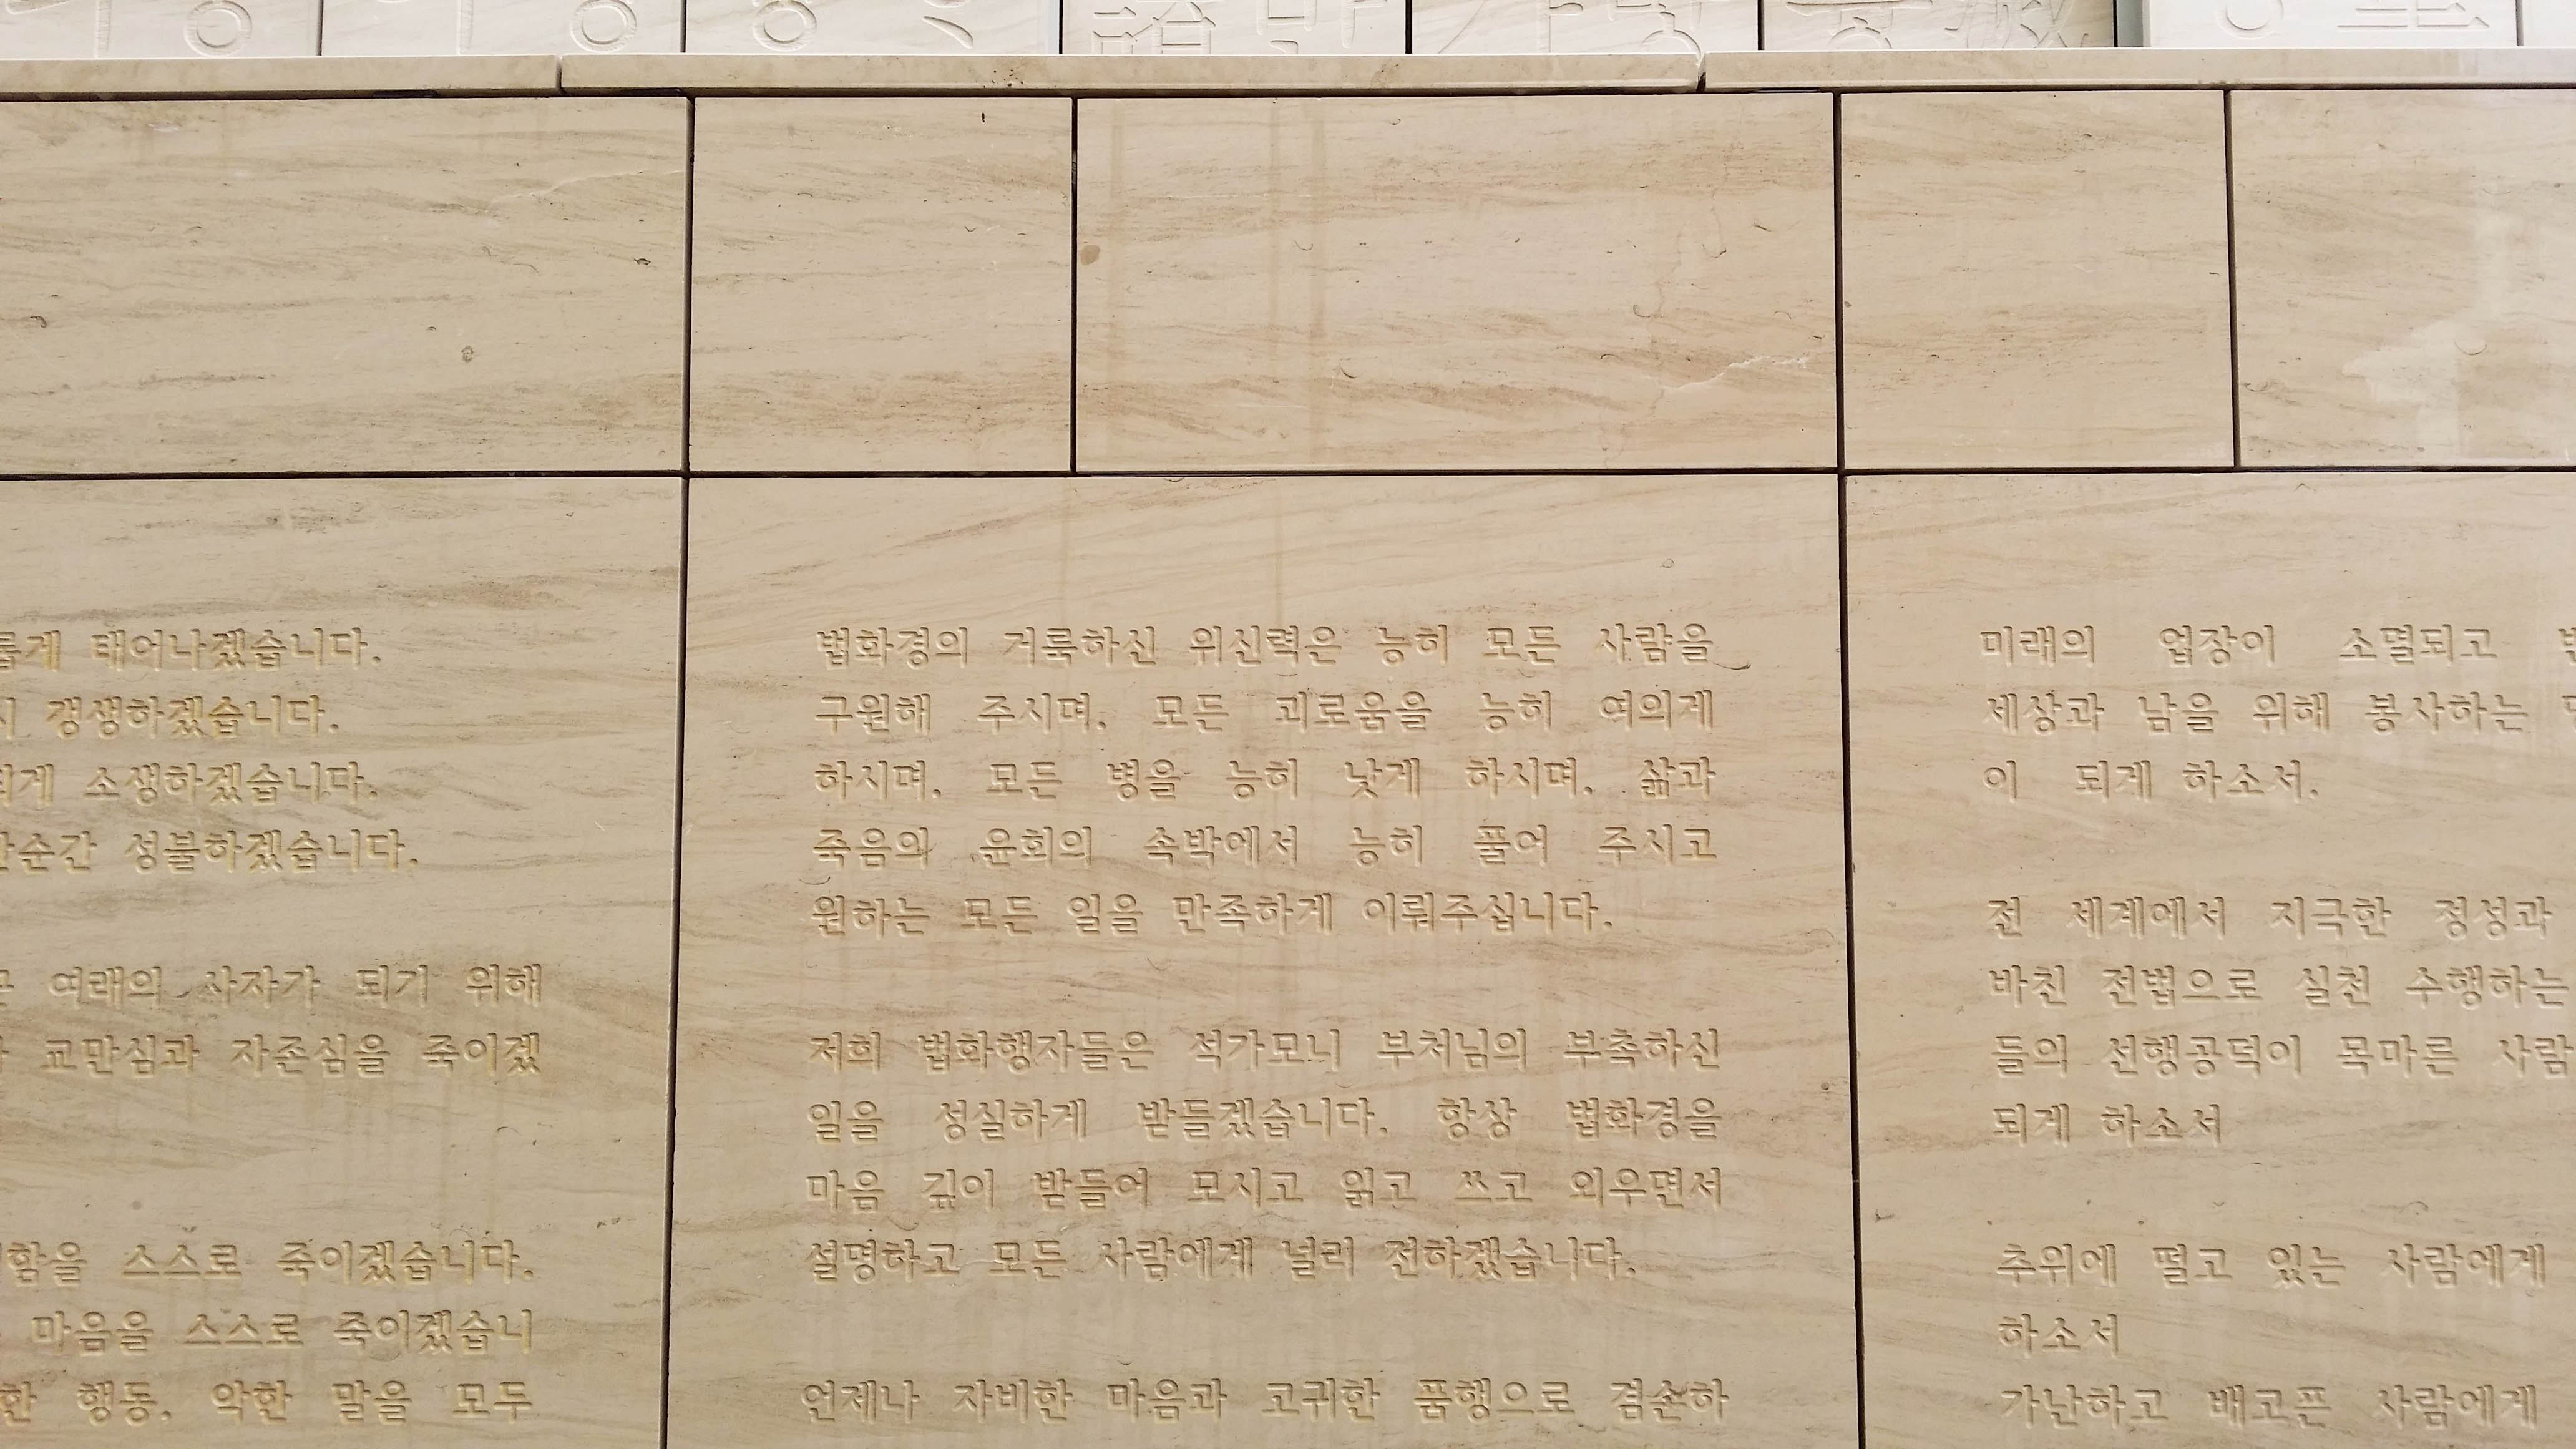 롭게 태어나겠습니다.
시 갱생하겠습니다.
되게 소생하겠습니다.
한순간 성불하겠습니다.
여래의 사자가 되기 위해
교만심과 자존심을 죽이겠
함을 스스로 죽이겠습니다.
마음을 스스로 죽이겠습니
한 행동, 악한 말을 모두
법화경의 거룩하신 위신력은 능히 모든 사람을
구원해 주시며, 모든 괴로움을 능히 여의게
하시며, 모든 병을 능히 낫게 하시며, 삶과
죽음의 윤회의 속박에서 능히 풀어 주시고
원하는 모든 일을 만족하게 이뤄주십니다.
저희 법화행자들은 석가모니 부처님의 부촉하신
일을 성실하게 받들겠습니다. 항상 법화경을
마음 깊이 받들어 모시고 읽고 쓰고 외우면서
설명하고 모든 사람에게 널리 전하겠습니다.
언제나 자비한 마음과 고귀한 품행으로 겸손하
미래의 업장이 소멸되고
세상과 남을 위해 봉사하는
이 되게 하소서.
전 세계에서 지극한 정성과
바친 전법으로 실천 수행하는
들의 선행공덕이 목마른 사람
되게 하소서
추위에 떨고 있는 사람에게
하소서
가난하고 배고픈 사람에게